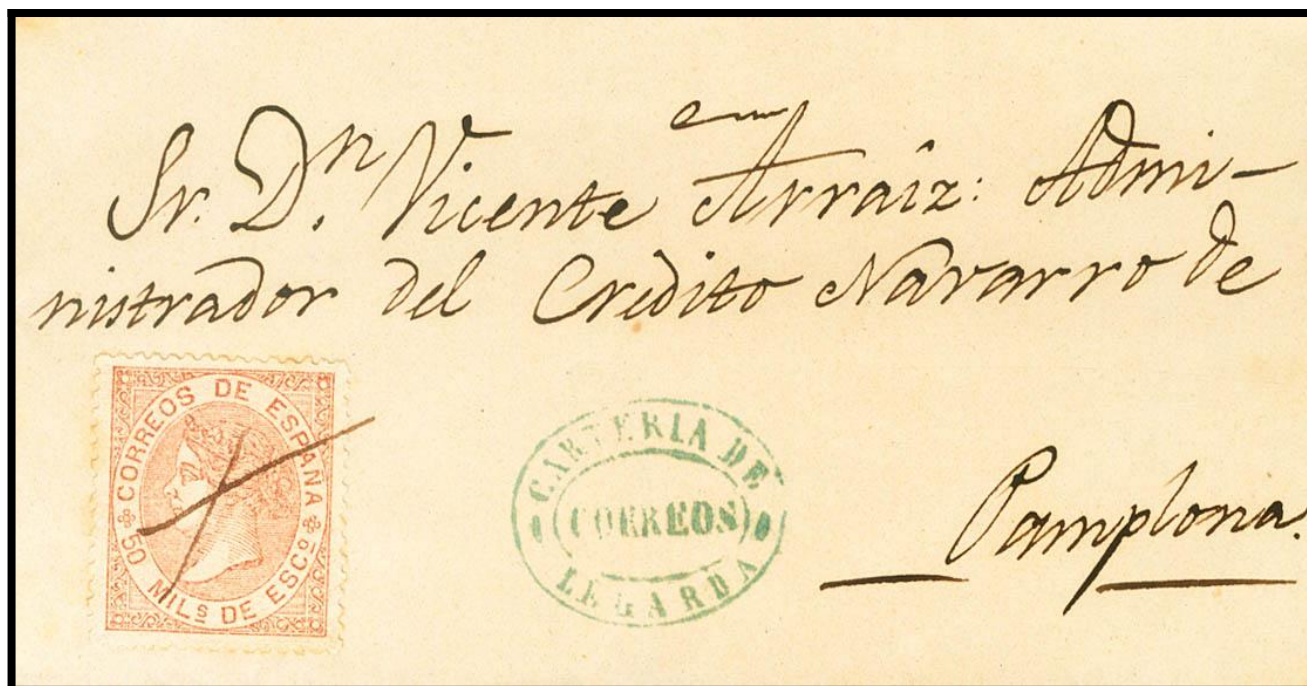 Sr. Dn. Vicente Arraiz: Admi-
nistrador del Credito Navarro de
Pamplona.
CORREOS DE ESPAÑA
50 MILS DE ESCO
CARTERIA DE
CORREOS
LEGARDA